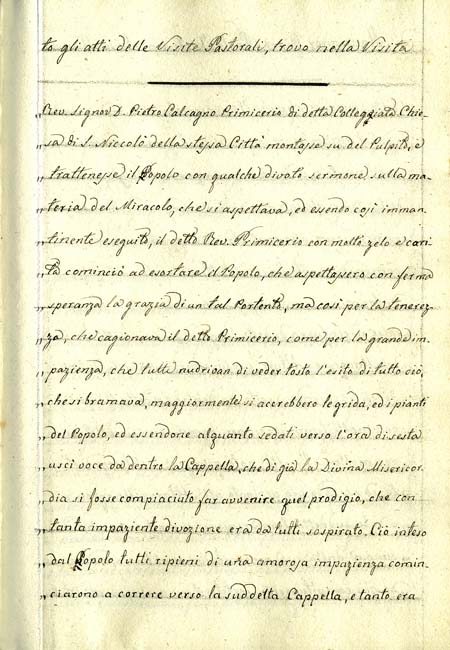 to gli atti delle Visite Pastorali, trovo nella Visita
„Rev. Signor D. Pietro Calcagno Primicerio di detta Colleggiata Chie-
„sa di S. Niccolò della stessa Città montasse su del Pulpito, e
„trattenesse il Popolo con qualche divoto sermone sulla ma-
„teria del Miracolo, che si aspettava, ed essendo così imman-
„tinente eseguito, il detto Rev. Primicerio con molto zelo e cari-
„tà cominciò ad esortare il Popolo, che aspettassero con ferma
„speranza la grazia di un tal Portento, ma così per la tenerez-
„za, che cagionava il detto Primicerio, come per la grande im-
„pazienza, che tutti nudrioan di veder tosto l'esito di tutto ciò,
„che si bramava, maggiormente si acerebbero le grida, ed i pianti
„del Popolo, ed essendone alquanto sedati verso l'ora di sesta
„uscì voce da dentro la Cappella, che di già la Divina Misericor-
„dia si fosse compiaciuto far avvenire quel prodigio, che con
„tanta impaziente divozione era da tutti sospirato. Ciò inteso
„dal Popolo tutti ripieni di una amorosa impazienza comin-
„ciarono a correre verso la suddetta Cappella, e tanto era